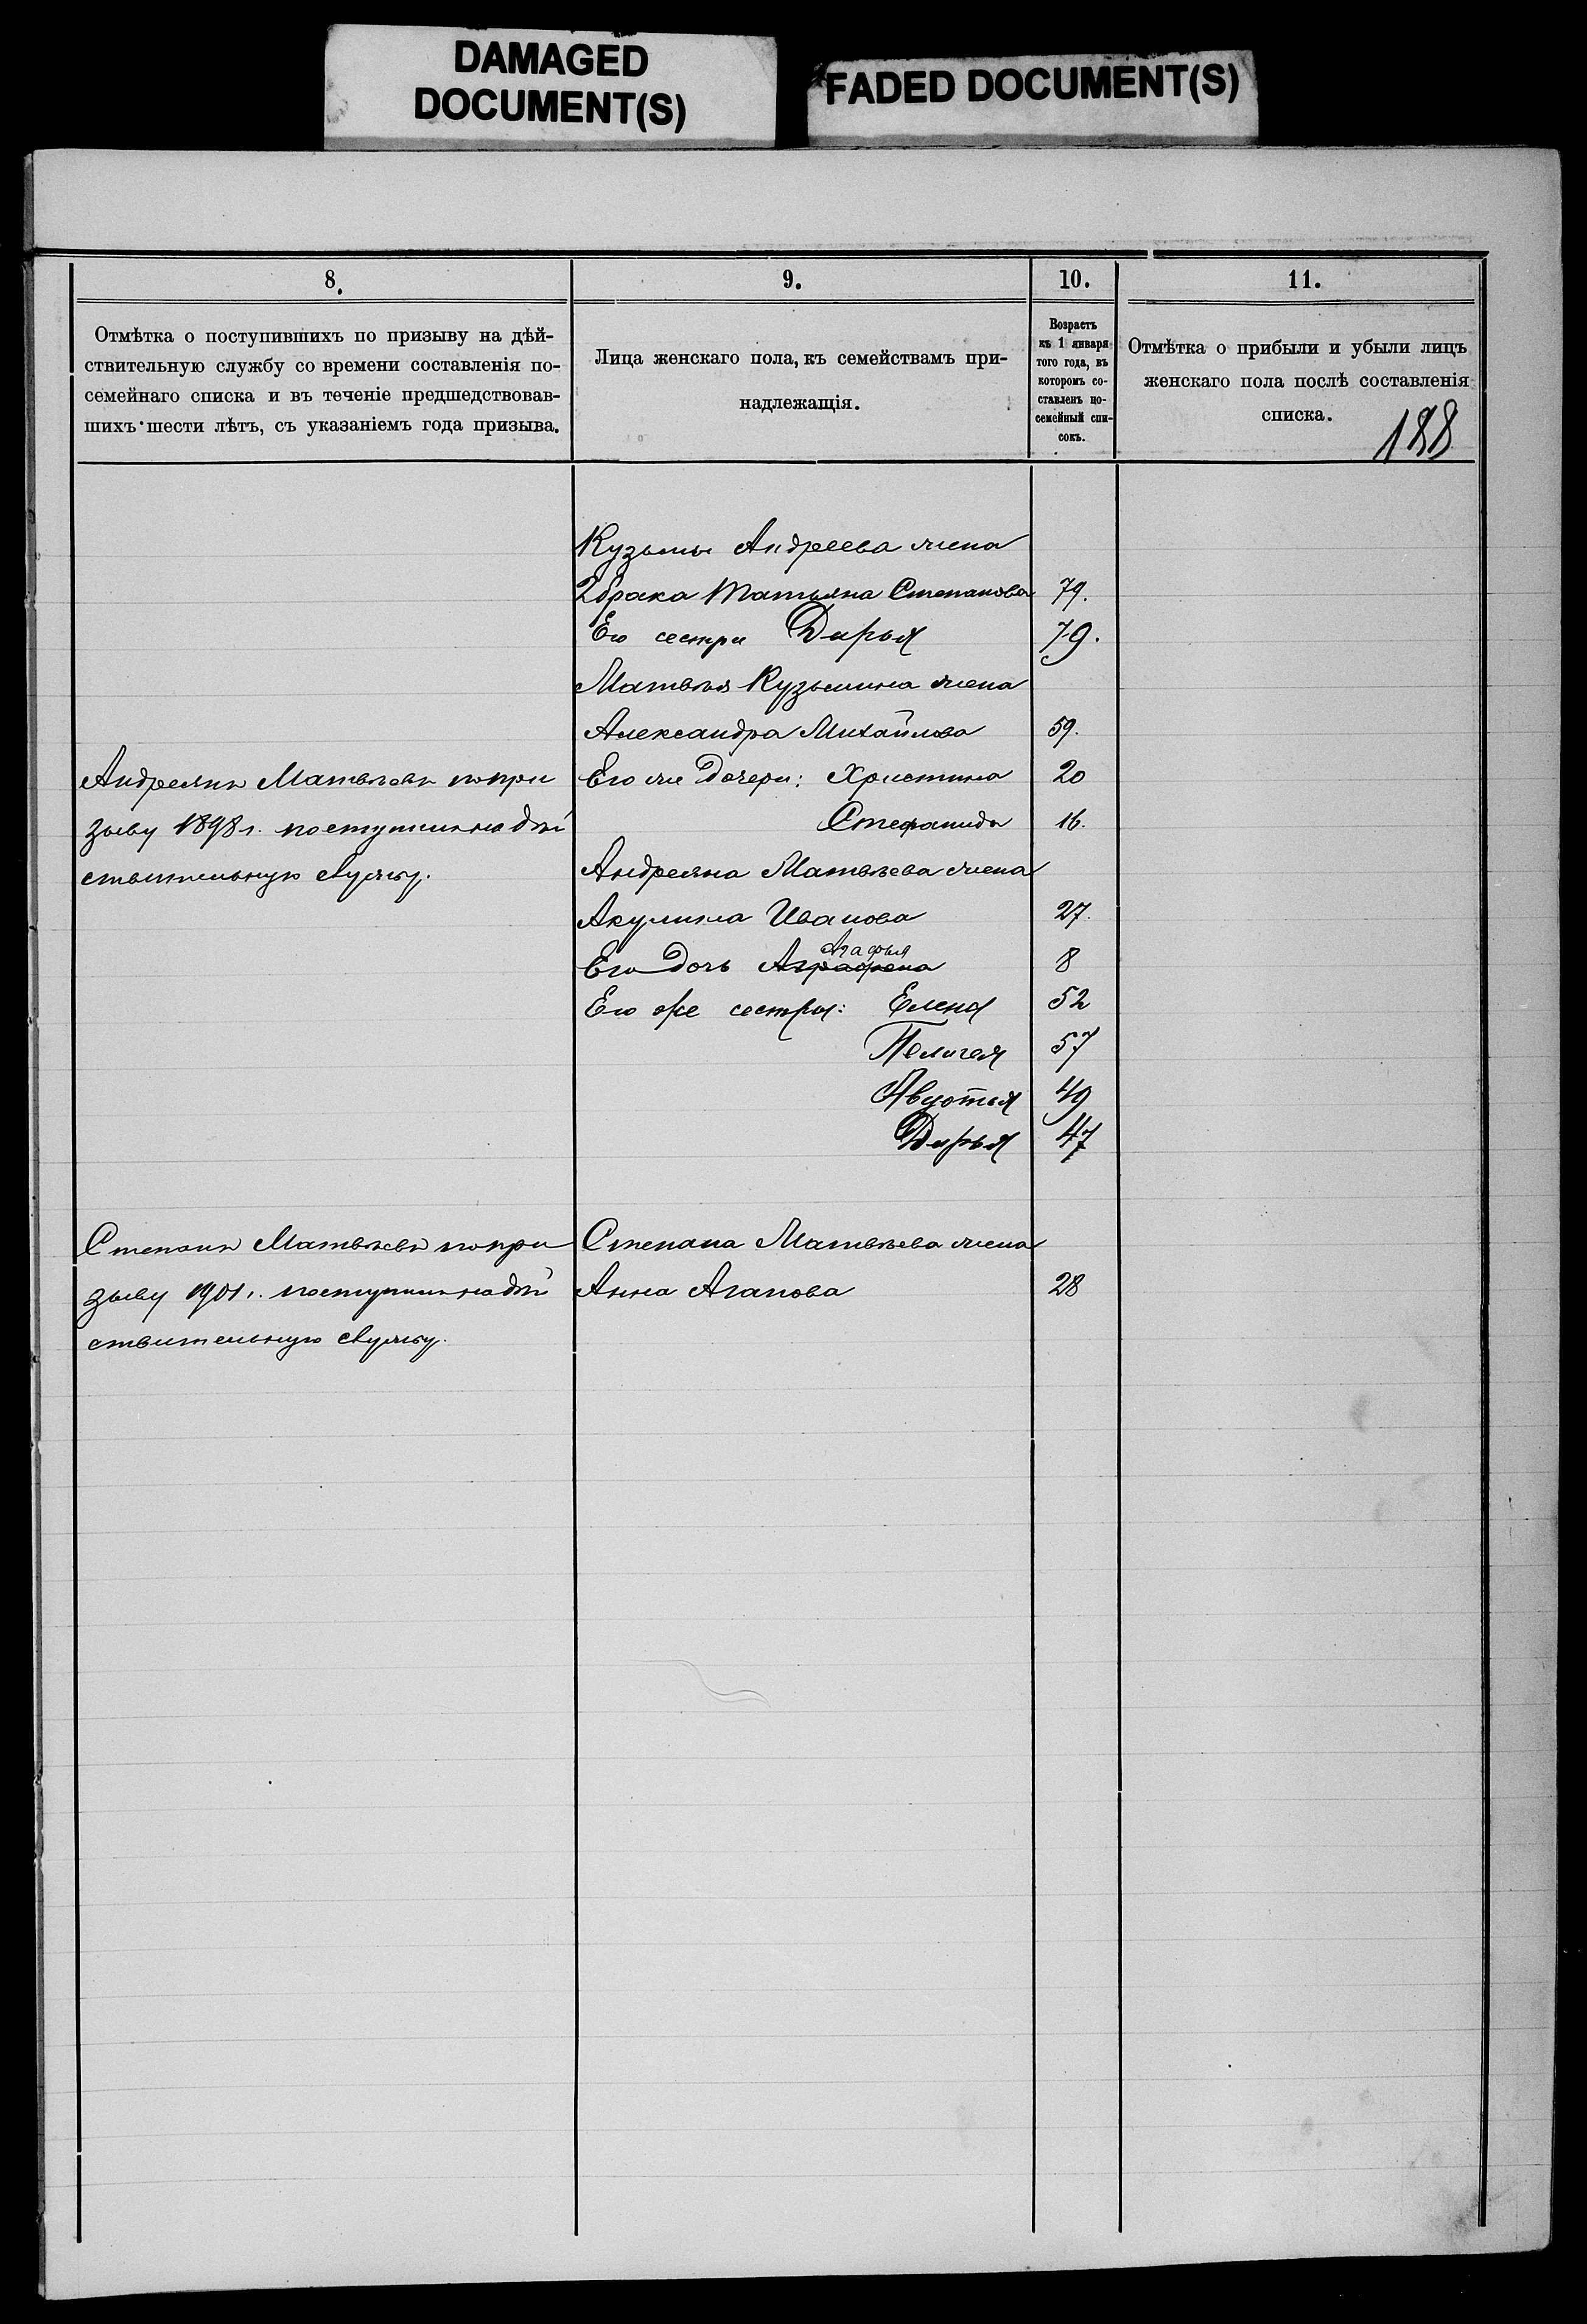 DAMAGED
DOCUMENT(S)
FADED DOCUMENT(S)
8.
9.
10.
11.
Отмѣтка о поступившихъ по призыву на дѣй-
ствительную службу со времени составленія по-
семейнаго списка и въ теченіе предшедствовав-
шихъ шести лѣтъ, съ указаніемъ года призыва.
Лица женскаго пола, къ семействамъ при-
надлежащія.
Возрастъ
къ 1 января
того года, въ
которомъ со-
ставленъ по-
семейный спи-
сокъ.
Отмѣтка о прибыли и убыли лицъ
женскаго пола послѣ составленія
списка.
188
Кузьмы Андреева жена
2 брака Татьяна Степанова 79.
Его сестра Дарья 79.
Матвѣя Кузьмина жена
Александра Михайлова 59.
Андреянъ Матвѣевъ по при
Его же дочери: Христина 20
зыву 1898 г. поступилъ на дѣй
Стефанида 16.
ствительную службу.
Андреяна Матвѣева жена
Акулина Иванова 27.
Агафья
Его дочь Аграфена 8
Его же сестры: Елена 52
Пелагея 57
Авдотья 49
Дарья 47
Степанъ Матвѣевъ по при
Степана Матвѣева жена
зыву 1901 г. поступилъ на дѣй
Анна Агапова 28
ствительную службу.